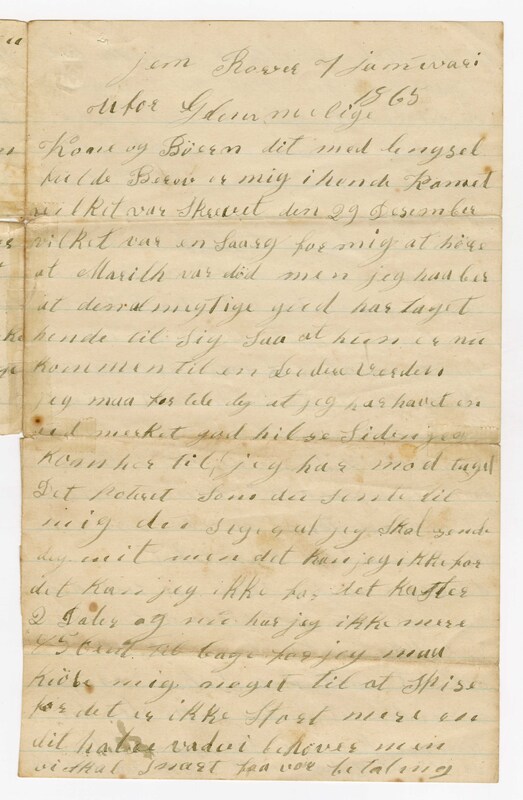 jem Rower 7 janevari
1865
Kone og Börn dit med lengsel
er mig ihende Komet
vilket var Skrevet den 29 Desember
vilket var en Saarg for mig at höre
at Marith var död men jeg haaber
at den almegtige gud har taget
hende til Sig Saa at hun er nu
kommen til en bedre Verden
jeg maa for tele dig at jeg har havet en
ved merket god hilse Siden jeg
kom her til, jeg har mod taget
Det Potret Som du Sente til
mig du Siger at jeg Skal Sende
dig mit men det kan jeg ikke for
det kan jeg ikke for det kaster
2 Daler og nu har jeg ikke mere
75 Cent til bage for jeg maa
kiöbe mig noget til at Spise
for det er ikke Stort mere en
dit halve vad vi behöver men
vi skal Snart faa vor betalning